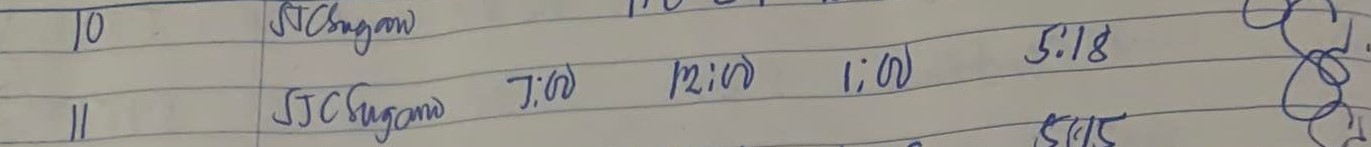 10 SJCSugano
11 SJCSugano 7:00 12:00 1:00 5:18
5:15